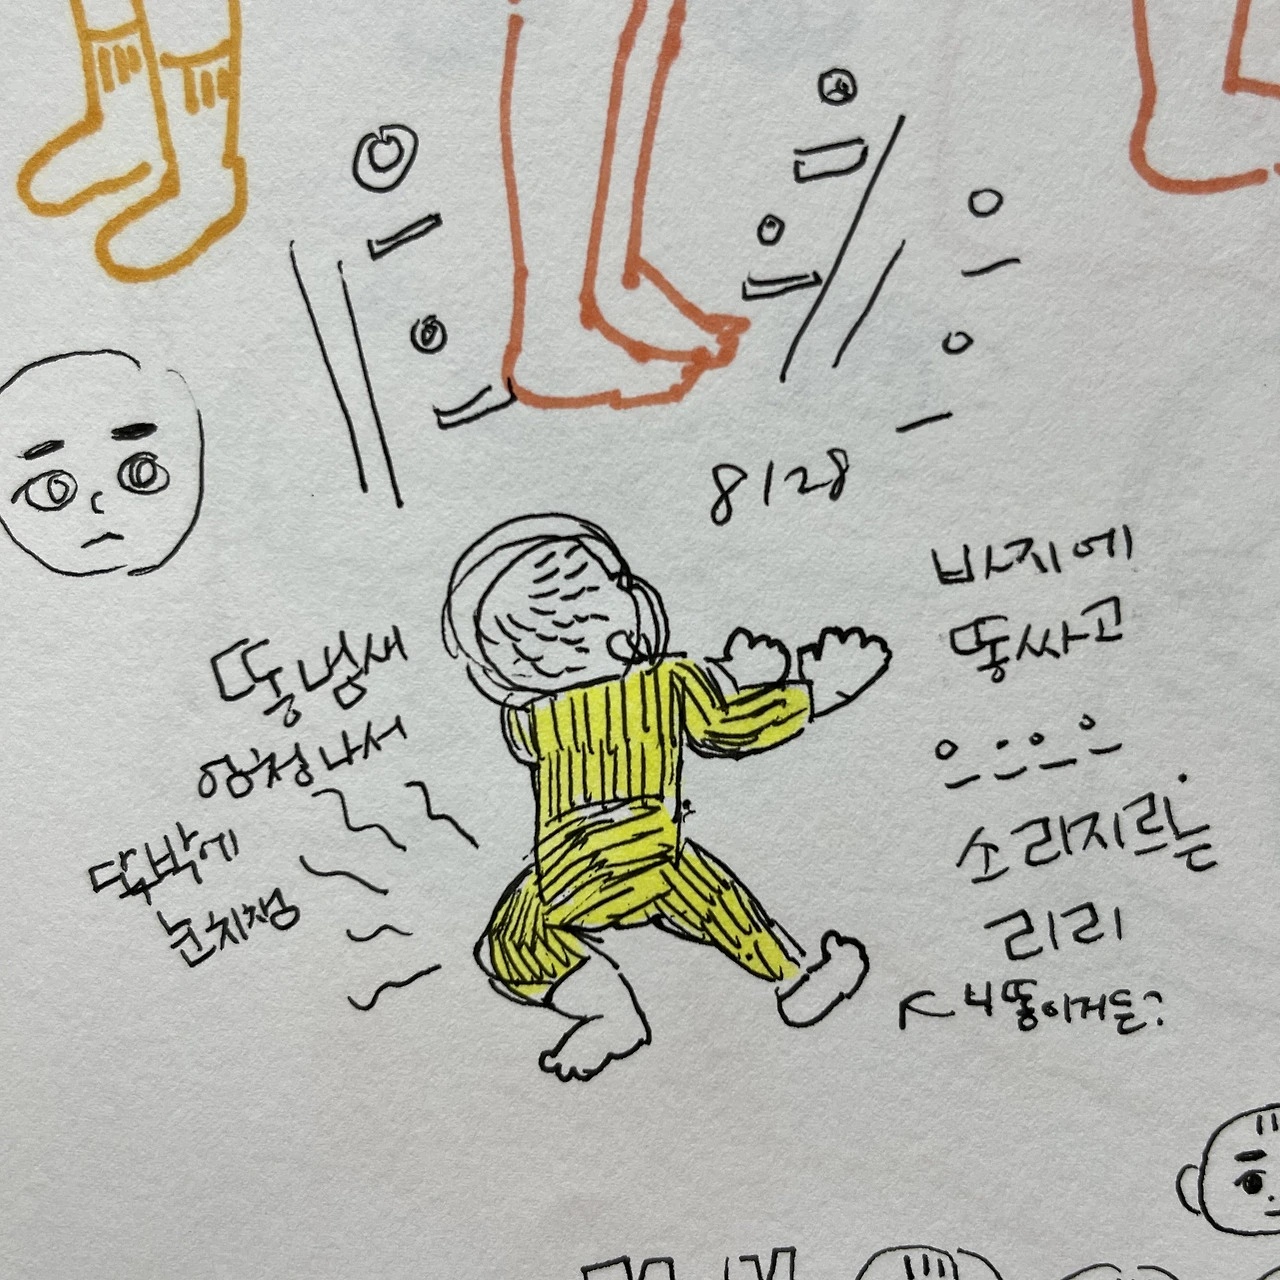 8/28
똥냄새
엄청나서
단박에
눈치챔
바지에
똥싸고
으으으으
소리지르는
리리
니똥이거든?